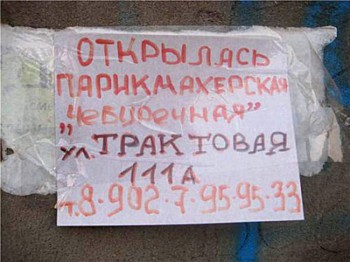 ОТКРЫЛАСЬ
ПАРИКМАХЕРСКАЯ
„Чебуречная”
ул. ТРАКТОВАЯ
111 А
т. 8-902-7-95-95-33